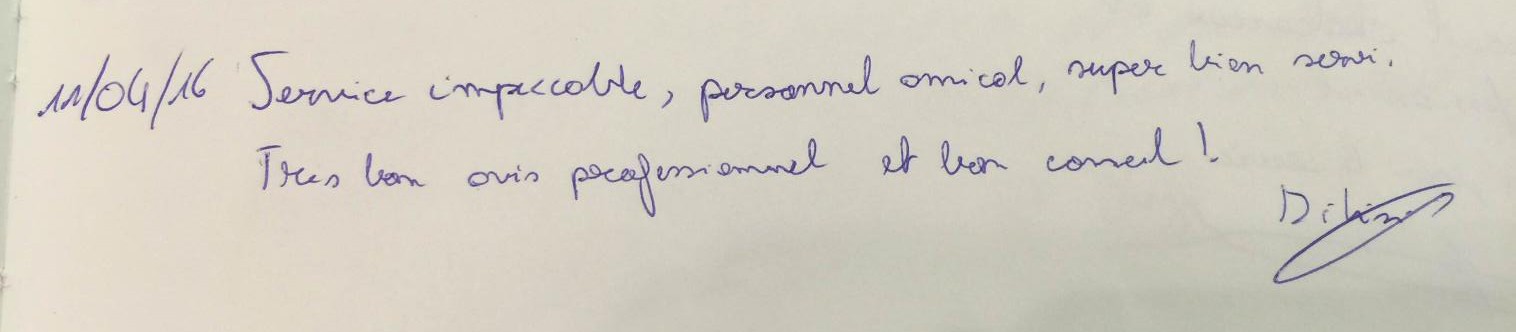 11/04/16 Service impeccable, personnel amical, super bien servi.
Tres bon avis professionnel et bon conseil !